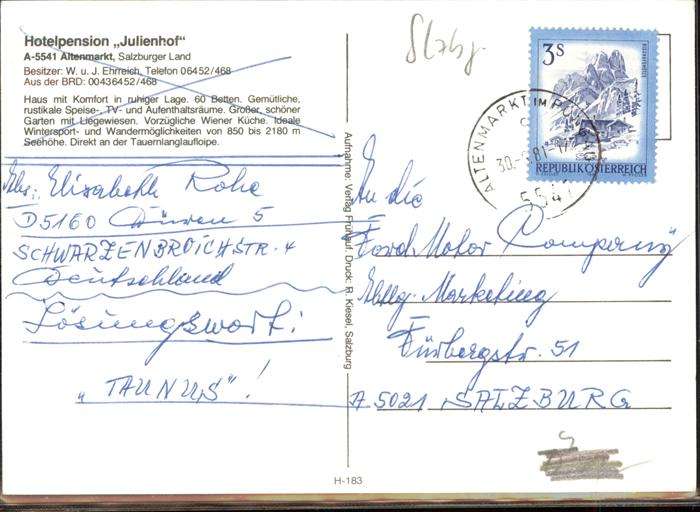 Hotelpension „Julienhof“
A-5541 Altenmarkt, Salzburger Land
Besitzer: W. u. J. Ehrreich, Telefon 06452/468
Aus der BRD: 00436452/468
Haus mit Komfort in ruhiger Lage. 60 Betten. Gemütliche,
rustikale Speise-, TV- und Aufenthaltsräume. Großer, schöner
Garten mit Liegewiesen. Vorzügliche Wiener Küche. Ideale
Wintersport- und Wandermöglichkeiten von 850 bis 2180 m
Seehöhe. Direkt an der Tauernlanglaufloipe.
Abs.: Elisabeth Rohe
D5160 Düren 5
SCHWARZENBROICHSTR. 4
Deutschland
Lösungswort:
„TAUNUS“!
Aufnahme, Verlag Frühauf, Druck: R. Kiesel, Salzburg
H-183
Slzbg.
3S
REPUBLIK ÖSTERREICH
ALTENMARKT IM PONGAU
5541
An die
Ford Motor Company
Abtlg. Marketing
Fürbergstr. 51
A 5021 SALZBURG